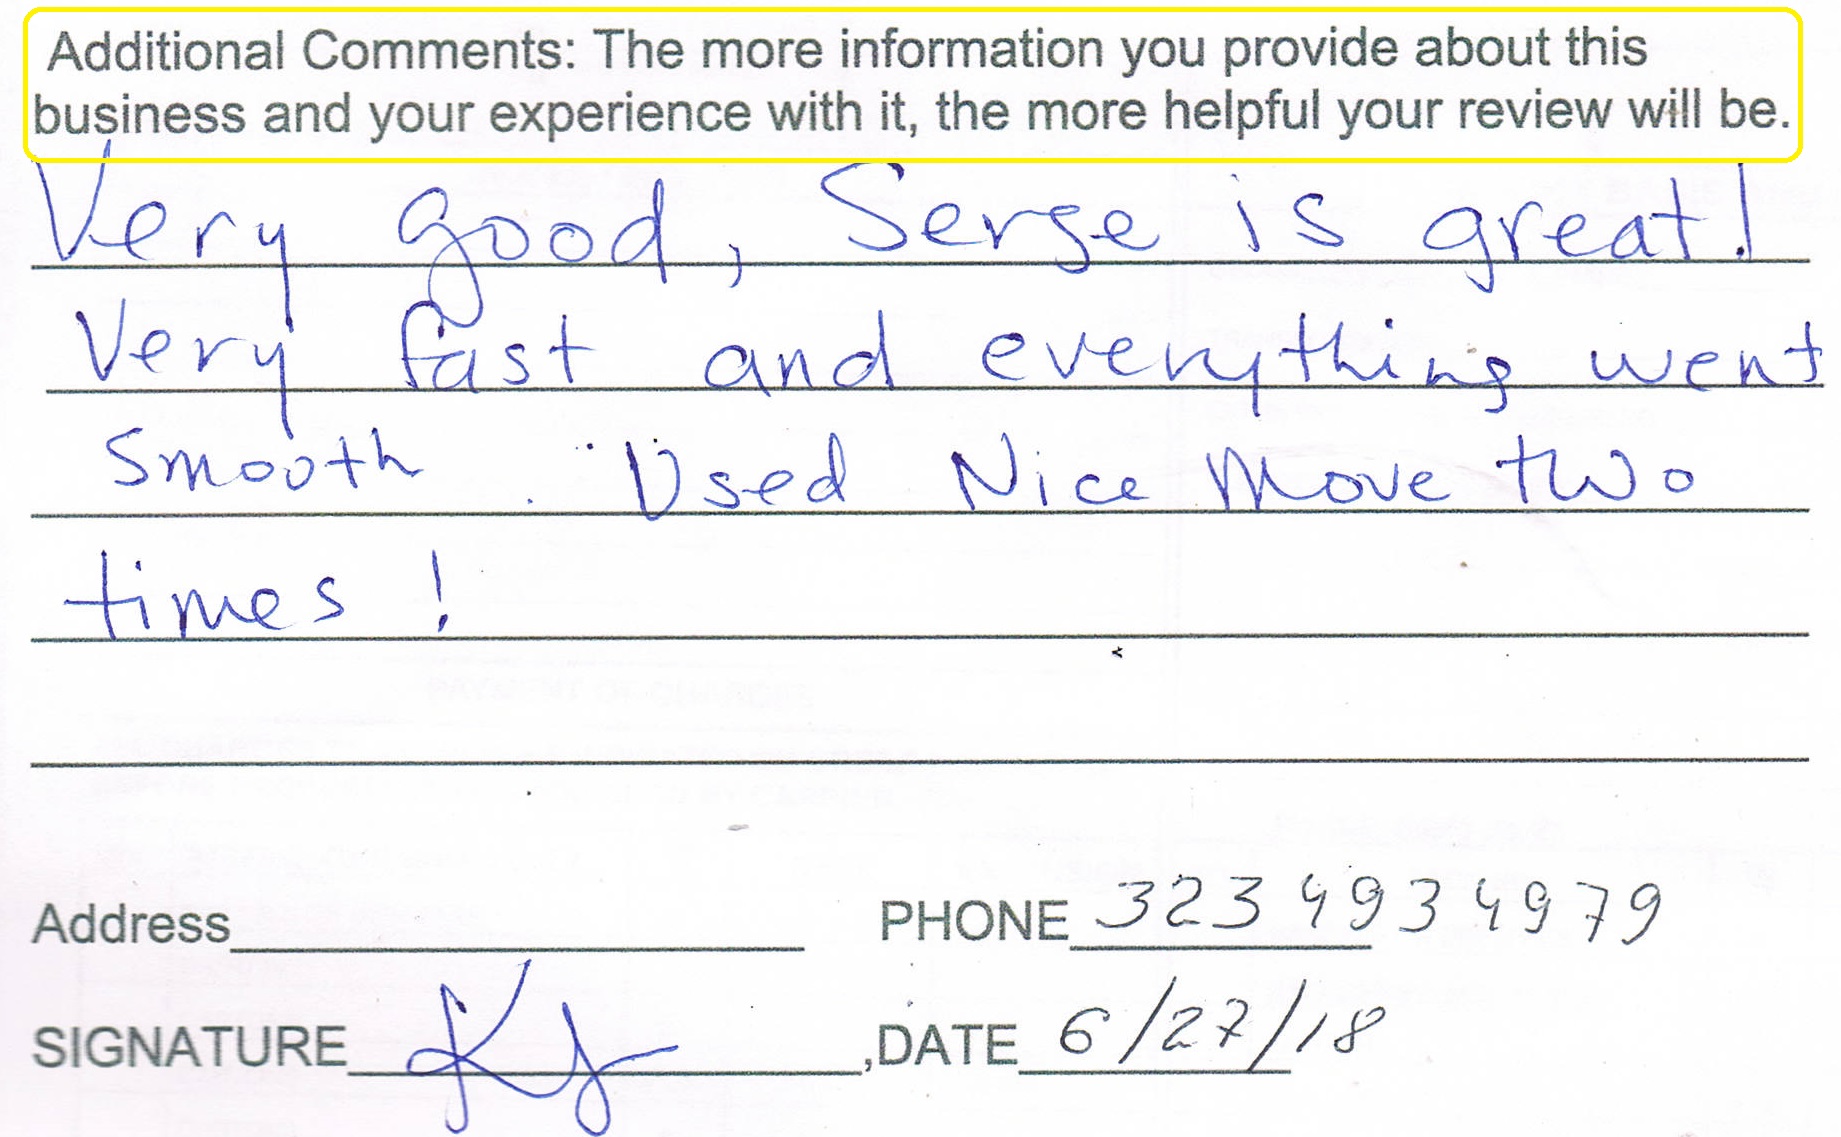 Additional Comments: The more information you provide about this
business and your experience with it, the more helpful your review will be.
Very good, Serge is great!
Very fast and everything went
smooth. Used Nice Move two
times!
Address PHONE 3234934979
SIGNATURE ,DATE 6/27/18